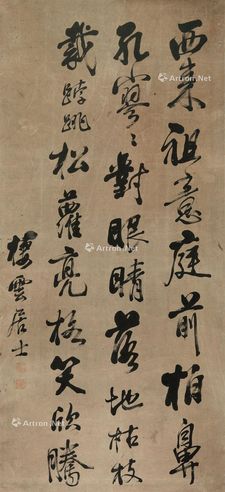 西来祖意庭前柏鼻
孔寥々對眼睛落地枯枝
載𨁝跳松蘿亮格笑欣騰
棲雲居士
Artron.Net
Artron.Net
Artron.Net
Artron.Net